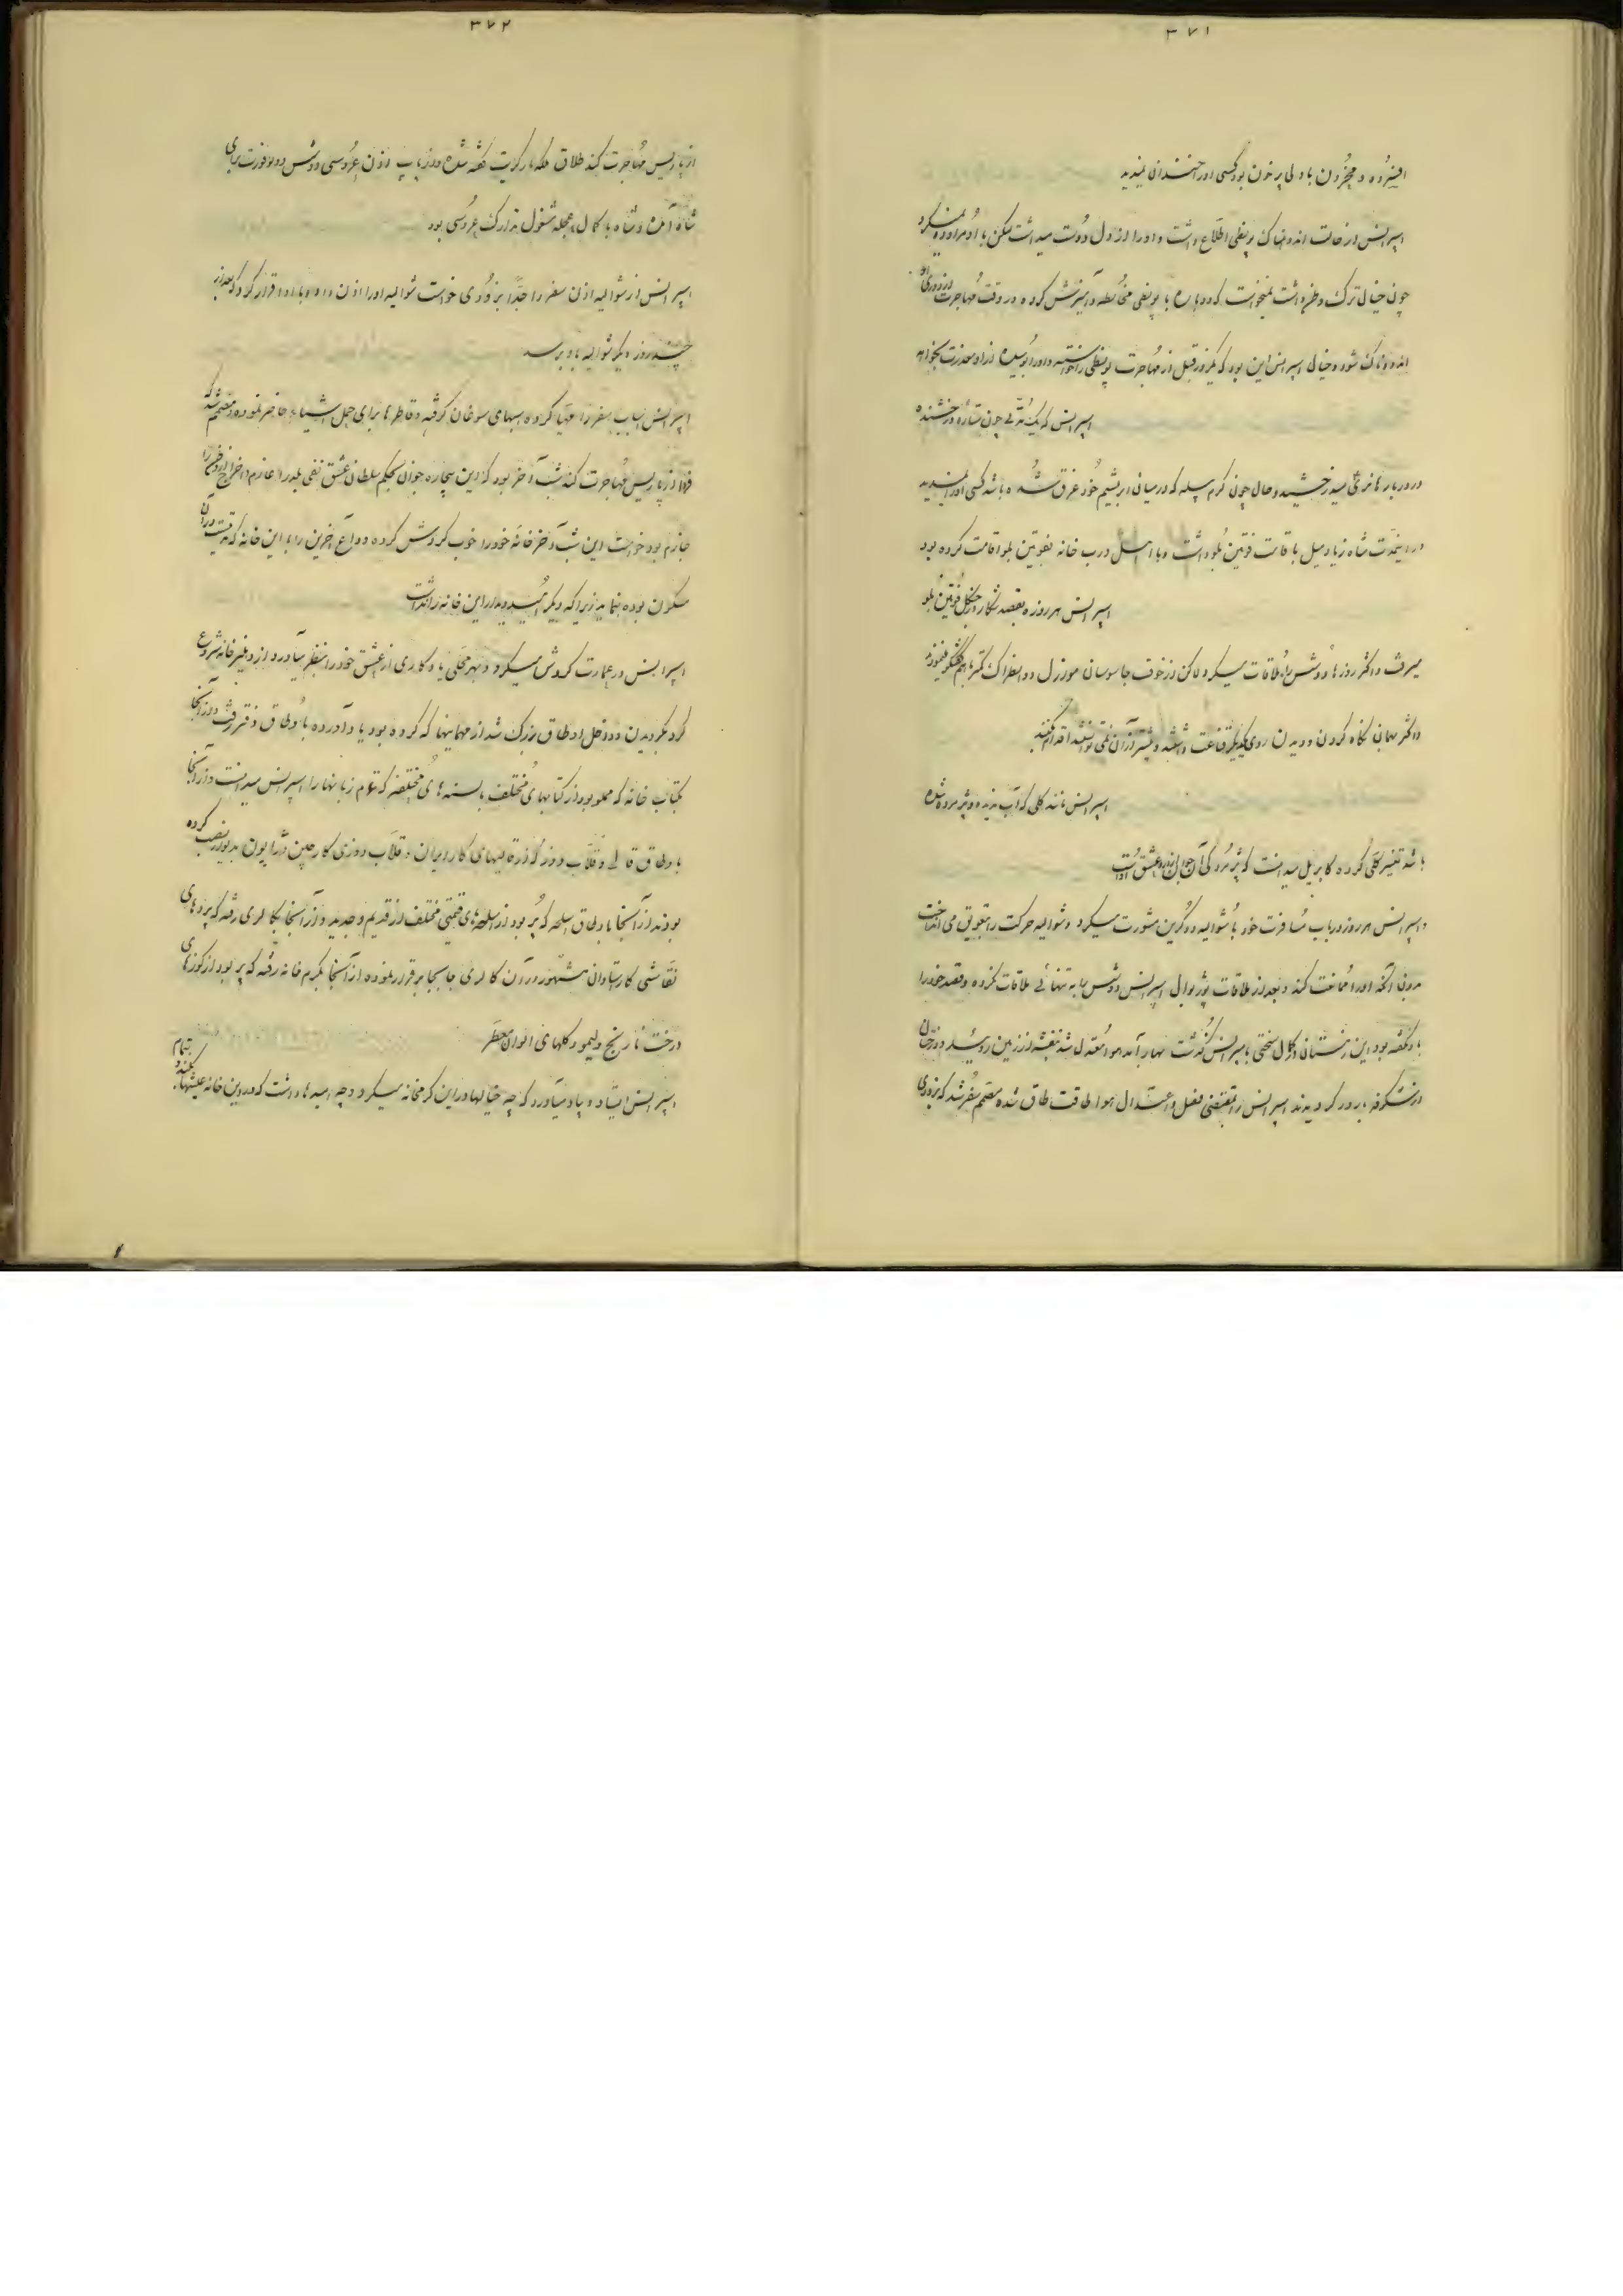 ۳۷۱
افسرده و محزون با دلی پر خون بود کسی او را خندان نمیدید
اسپرانس از حالت اندوهناک پونفی اطلاع داشت و او را از دل دوست میداشت لیکن با او مراوده نمیکرد
چون خیال ترک وطن داشت نمیخواست که دوباره با پونفی مخالطه و آمیزش کرده در وقت مهاجرت از دوری او
اندوهناک شود و خیال اسپرانس این بود که یکروز قبل از مهاجرت پونفی را خواسته و او را بوسیده از او معذرت بخواهد
اسپرانس که یک مدتی چون ستاره درخشنده
در دربار هانری میدرخشید و حال چون کرم پیله که در میان ابریشم خود غرق شده باشد کسی او را نمیدید
در اینمدت شاه زیاد میل باقامت فونتین بلو داشت و با اهل درب خانه بفونتین بلو اقامت کرده بود
اسپرانس هر روزه بقصد شکار در جنگل فونتین بلو
میرفت و اکثر روزها دوشس را ملاقات میکرد ولاکن از خوف جاسوسان موزل و دانطراک کمتر باهم گفتگو مینمودند
و اکثر بهمان نگاه کردن و دیدن روی یکدیگر قناعت داشتند و بیشتر از آن نمی توانستند اقدام کنند
اسپرانس مانند گلی که آب ندیده و پژمرده شده
باشد تغییر کلی کرده گابریل میدانست که پژمردگی آن جوان از درد عشق اوست
و اسپرانس هر روز در باب مسافرت خود با شوالیه دوگرین مشورت میکرد و شوالیه حرکت را بتعویق می انداخت
بدون آنکه او را ممانعت کند و بعد از ملاقات پوژیوال اسپرانس دوشس را به تنهائی ملاقات نکرده و قصد خود را
باو نگفته بود این زمستان در کمال سختی باسپرانس گذشت بهار آمد هوا معتدل شد بنفشه از زمین روئید درختان
از شکوفه بارور گردیدند اسپرانس را بمقتضی فصل و اعتدال هوا طاقت طاق شده مصمم سفر شد که بزودی
۳۷۲
از پاریس مهاجرت کند طلاق ملکه مارگریت گفته شده و از پاپ اذن عروسی دوشس دوبوفورت برای
شاه آمده و شاه با کمال عجله مشغول تدارک عروسی بود
اسپرانس از شوالیه اذن سفر را جدّاً بزودی خواست شوالیه او را اذن داد و با او قرار کرد که بعد از
چند روز دیگر شوالیه باو برسد
اسپرانس اسباب سفر را مهیا کرده اسبهای سوغان گرفته و قاطرها برای حمل اشیاء حاضر نموده و مصمم شد که
فردا از پاریس مهاجرت کند شب آخر بود که این بیچاره جوان بحکم سلطان عشق نفی بلد را عازم و اخراج از وطن را
جازم بود خواست این شب آخر خانه خود را خوب گردش کرده وداع آخرین را با این خانه که مدتیست در آن
مسکون بوده بنماید زیرا که دیگر امید دیدار این خانه را نداشت
اسپرانس در عمارت گردش میکرد و بهر محلی یادگاری از عشق خود را بنظر میآورد از دهلیز خانه شروع
کرد بگردیدن و داخل اوطاق بزرگ شد از مهمانیها که کرده بود یاد آورده باوطاق دفتر رفت و از آنجا
بکتاب خانه که مملو بود از کتابهای مختلف بالسنه های مختلفه که تمام زبانها را اسپرانس میدانست و از آنجا
باوطاق قالی و قلّاب دوز که از قالیهای کار ایران و قلّاب دوزی کار چین و ژاپون بدیوار نصب کرده
بودند از آنجا باوطاق اسلحه که پر بود از اسلحه های قیمتی مختلف از قدیم و جدید و از آنجا بگالری رفته که پرده های
نقاشی کار استادان مشهور در آن گالری جابجا برقرار نموده از آنجا بگرم خانه رفته که پر بود از کوزه های
درخت نارنج و لیمو و گلهای الوان معطر
اسپرانس ایستاد و بیاد میآورد که چه خیالها در این گرمخانه میکرد و چه امیدها داشت که در این خانه عیشها بکند و تمام